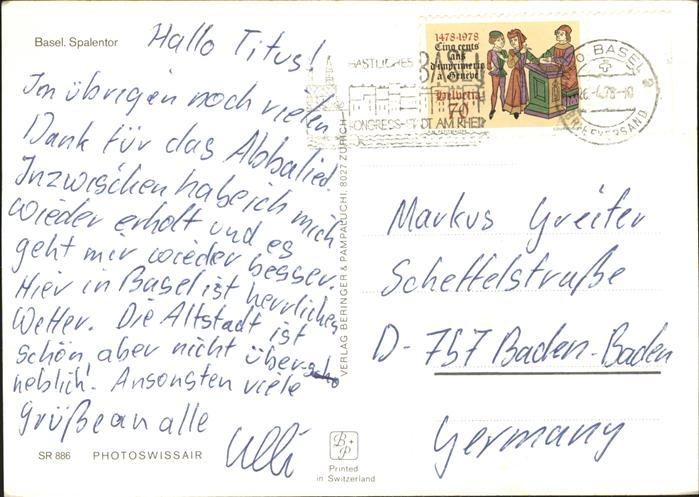 Basel. Spalentor
Hallo Titus!
Im übrigen noch vielen
Dank für das Abbalied.
Inzwischen habe ich mich
wieder erholt und es
geht mir wieder besser.
Hier in Basel ist herrliches
Wetter. Die Altstadt ist
schön aber nicht über-
heblich! Ansonsten viele
Grüße an alle
Ulli
SR 886 PHOTOSWISSAIR
VERLAG BERINGER & PAMPALUCHI, 8027 ZÜRICH
B+P
Printed
in Switzerland
GASTLICHES
BASEL
KONGRESS-STADT AM RHEIN
1478-1978
Cinq cents
ans
d'imprimerie
à Genève
Helvetia
70
BASEL 2
26.-4.78-18
BRIEFVERSAND
Markus Greiter
Scheffelstraße
D-757 Baden-Baden
Germany